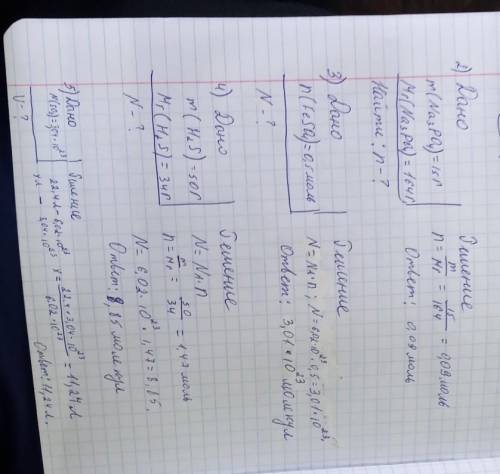 2) Дано
m(Na3PO4)=15г
Mr(Na3PO4)=164г
Найти: n-?
Решение
n = m/Mr = 15/164 = 0,09моль
Ответ: 0,09 моль
3) Дано
n(FeSO4)=0,5 моль
N-?
Решение
N=NA·n; N=6,02·10^23·0,5=3,01·10^23
Ответ: 3,01·10^23 молкул
4) Дано
m(H2S)=50г
Mr(H2S)=34г
N-?
Решение
N=NA·n
n = m/Mr = 50/34 = 1,47 моль
N=6,02·10^23·1,47=8,85.
Ответ: 8,85 молкул
5) Дано
=3,01·10^23
V-?
Решение
22,4л-6,02·10^23
xл - 3,04·10^23
x = 22,4·3,04·10^23/6,02·10^23 = 11,24 л
Ответ: 11,24 л.